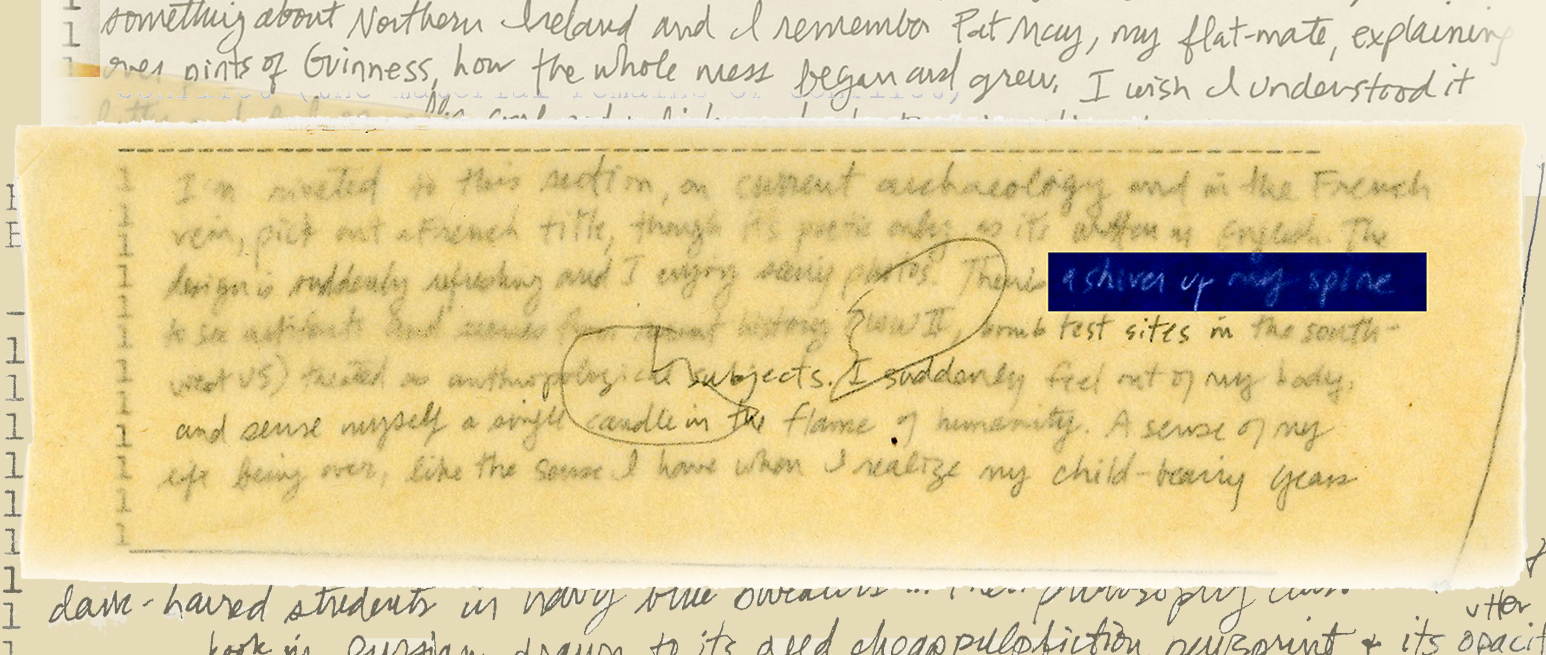 something about Northern Ireland and I remember Pat May, my flat-mate, explaining
over pints of Guinness, how the whole mess began and grew. I wish I understood it
I'm riveted to this section, on current archaeology and in the French
vein, pick out a French title, though its poetic only as it's written in English. The
design is suddenly refreshing and I enjoy seeing photos. There is a shiver up my spine
to see artifacts and scenes from recent history (WW II, bomb test sites in the south-
west US) treated as anthropological subjects. I suddenly feel out of my body,
and sense myself a single candle in the flame of humanity. A sense of my
life being over, like the sense I have when I realize my child-bearing years
dark-haired students in navy blue sweaters in their philosophy class
utter
book in Russian, drawn to its aged cheap pulp fiction newsprint + its opacit